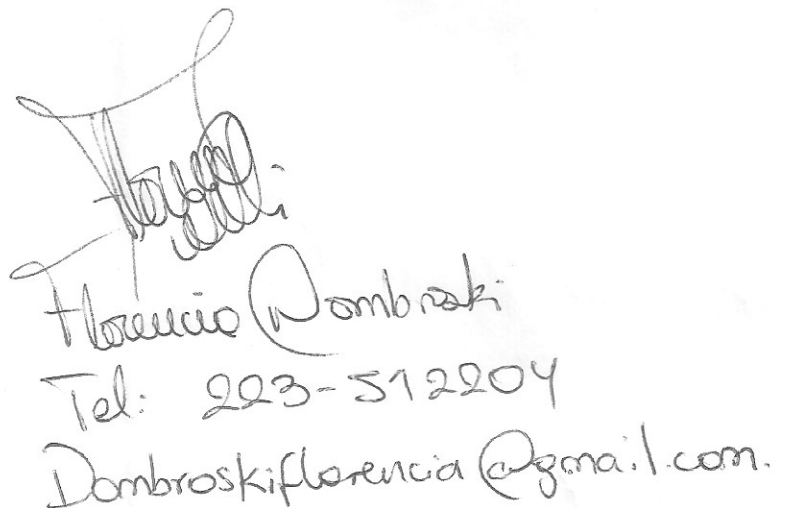 Florencia Dombroski
Tel: 223-512204
Dombroskiflorencia@gmail.com.